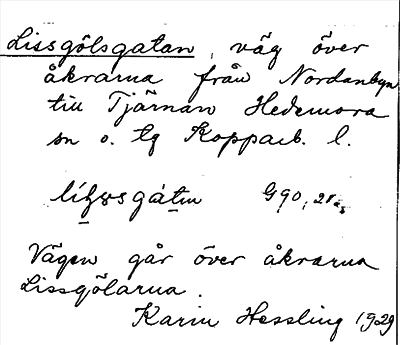 Lissgölsgatan, väg över
åkrarna från Nordanbyn
till Tjärnan Hedemora
sn o. tg Kopparb. l.
G90,
Vägen går över åkrarna
Lissgölarna.
Karin Hessling 1929